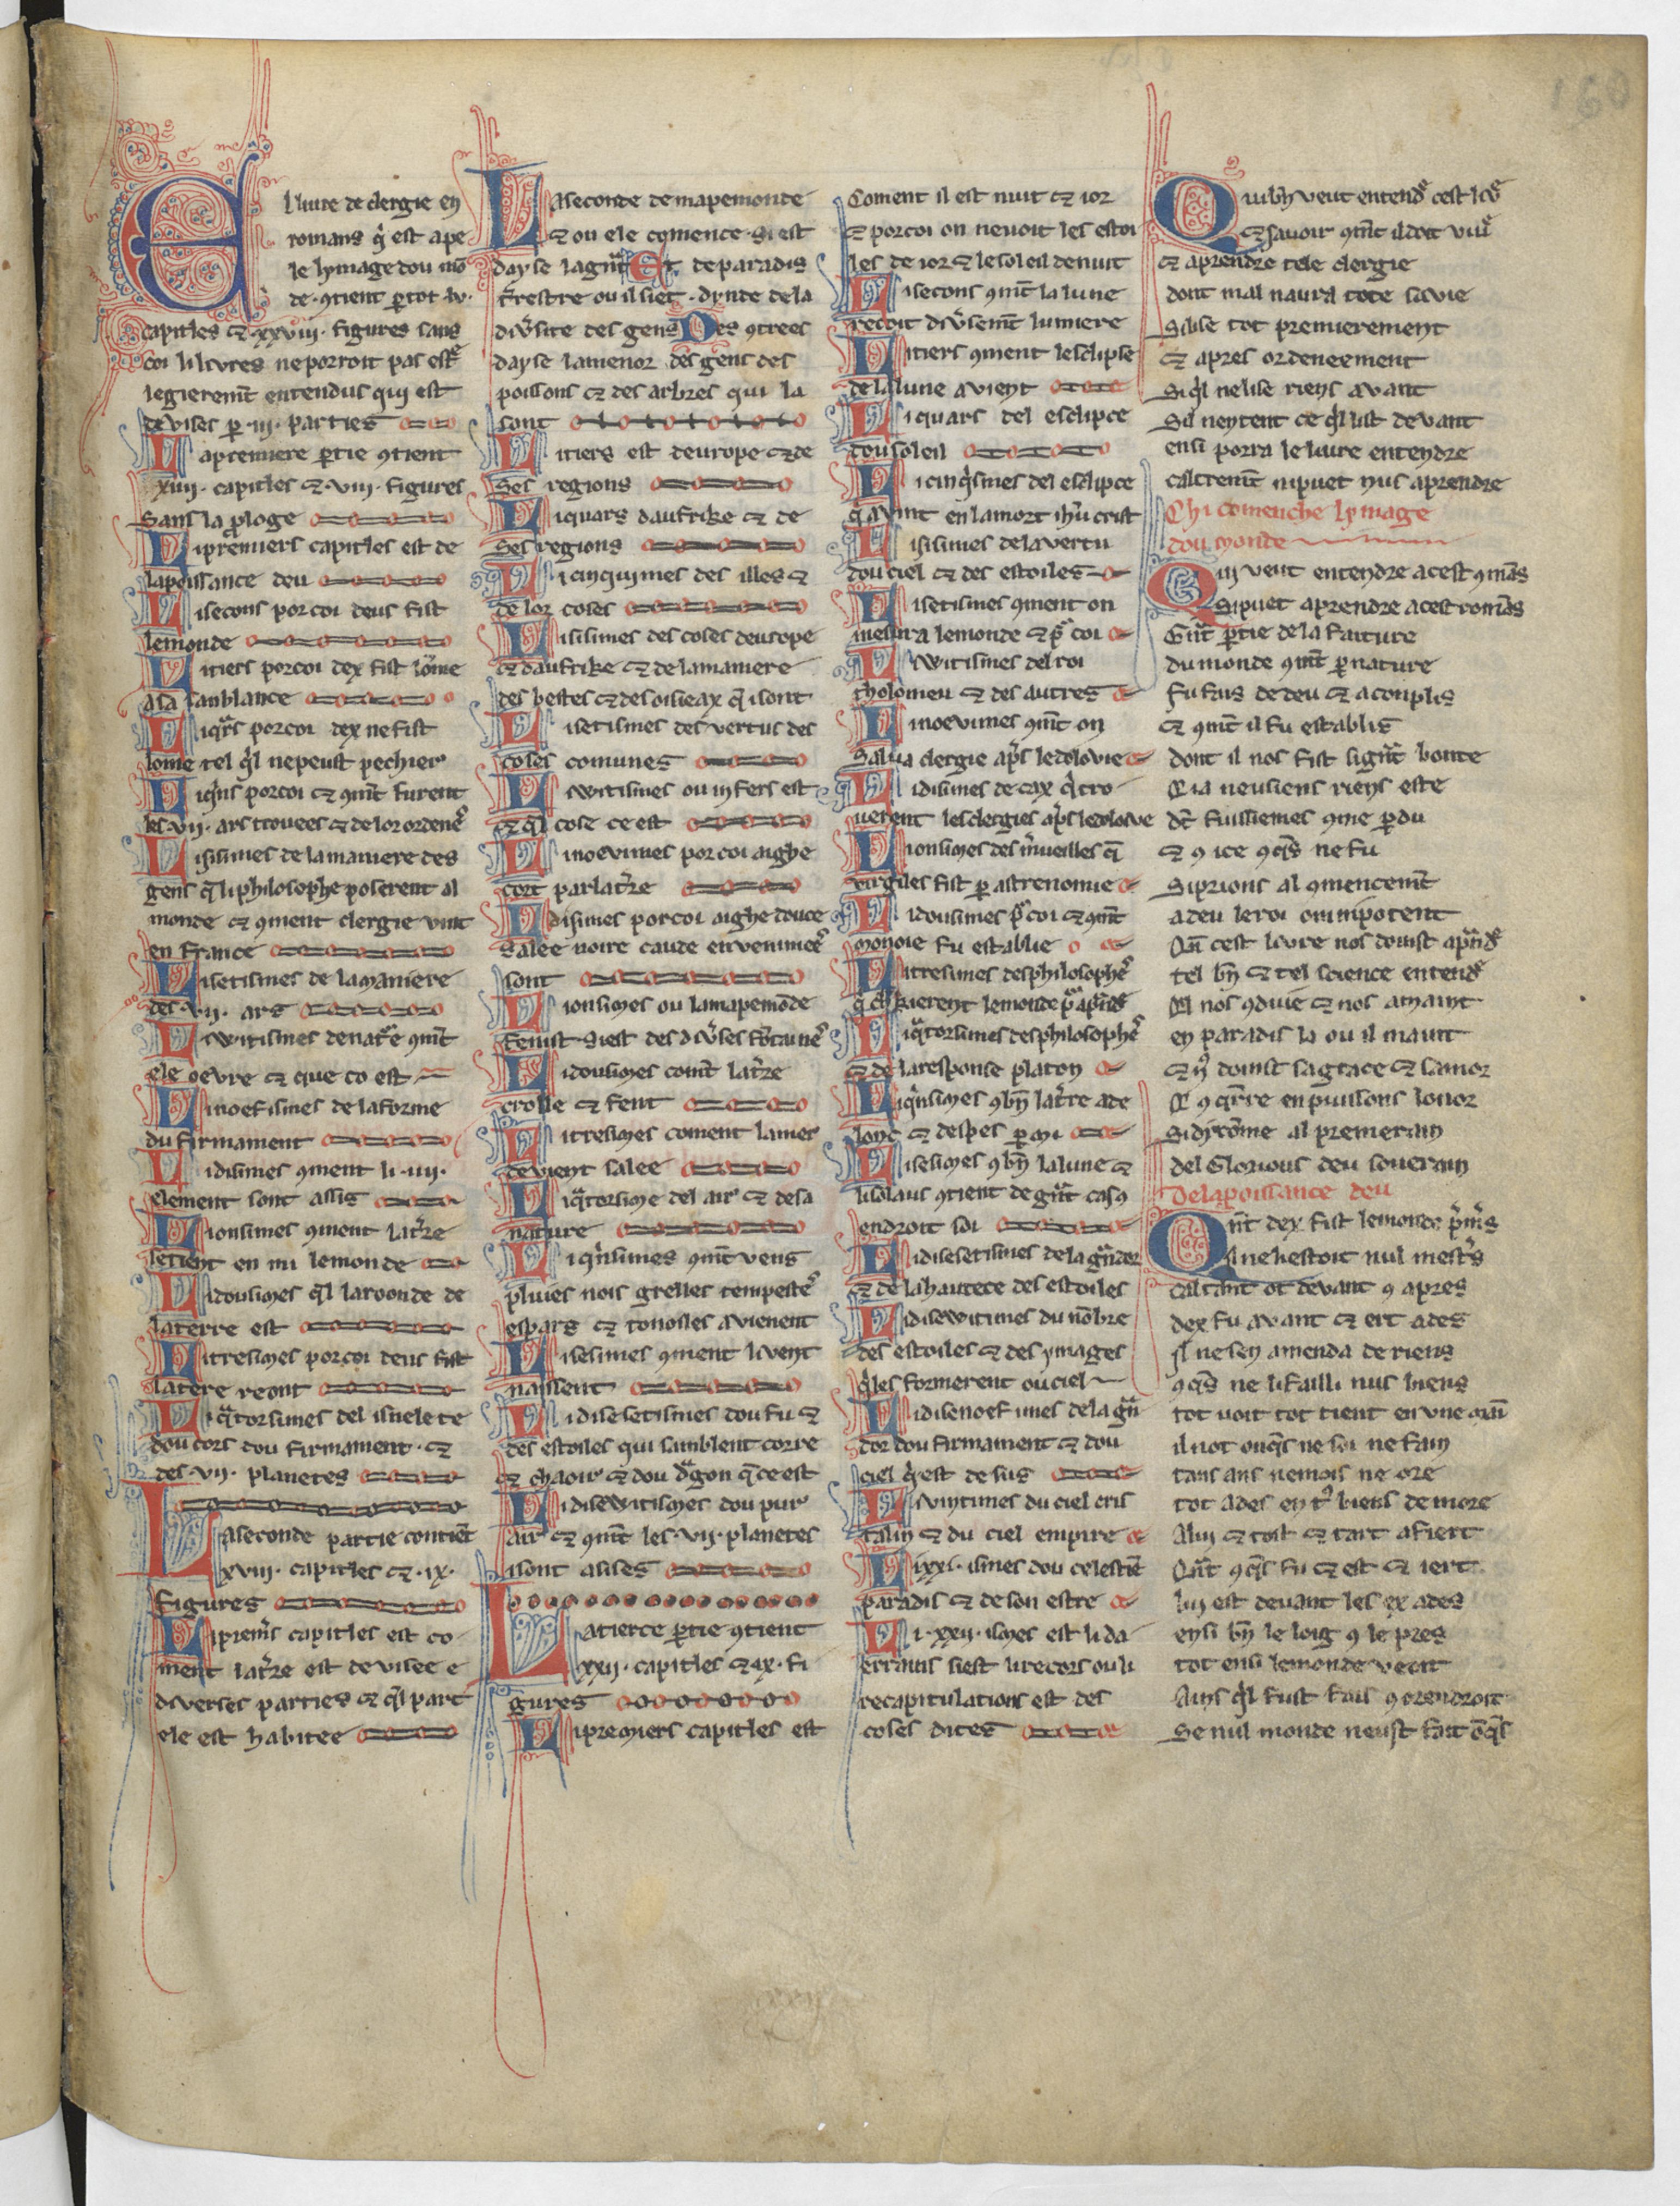 El liure de clergie en
romans q̇ est ape
le lymage dou mō
de · ꝯtient ꝑ tot · lv ·
capitles ⁊ xxviii · figures sans
coi li liures ne porroit pas estr̄
legieremt̄ entendus qui est
deuises ꝑ · iii · parties
La premiere ꝑtie ꝯtient
xiiii · capitles ⁊ · viii · figures
Sans la ꝓloge
Li premiers capitles est de
la poissance deu
Li secons por coi deus fist
le monde
Li tiers por coi dex fist lōme
a sa sanblance
Li qᵃrs por coi dex ne fist
lome tel q̇l ne peust pechier
Li qⁱns por coi ⁊ ꝯmt̄ furent
les · vii · ars trouees ⁊ de lor ordenes̄
Li sisimes de la maniere des
gens q̄ li philosophe poserent al
monde ⁊ ꝯment clergie vint
en france
Li setismes de la maniere
des · vii · ars
Li witismes de natᵉ̄ ꝯmt̄
ele oevre ⁊ que co est
Li noefismes de la forme
du firmament
Li disimes ꝯment li · iiii ·
element sont assis
Li onsimes ꝯment la tr̄re
se tient en mi le monde
Li dousimes q̄l la roonde de
la terre est
Li tresimes por coi deus fist
la tere reont
Li qᵃtorsimes del isnelete
dou cors dou firmament · ⁊
des · vii · planetes
La seconde partie contiēt
xviii · capitles ⁊ · ix ·
figures
Li premr̄s capitles est co
ment la tr̄re est deuisee e
diuerses parties ⁊ q̄l part
ele est habitee
La seconde de mapemonde
⁊ ou ele comence · Si est
dayse la gnt̄ Et de paradis
tr̄restre ou il siet · dynde de la
div̄site des gens Des ꝯtrees
dayse la menor des gens des
poissons ⁊ des arbres qui la
sont
Li tiers est deurope ⁊ de
Ses regions
Li quars daufrike ⁊ de
Ses regions
Li cinquimes des illes ⁊
de lor coses
Li sisimes des coses deurope
⁊ daufrike ⁊ de la maniere
des bestes ⁊ des oiseax q̄ i sont
Li setismes des vertus des
coses comunes
Li witismes ou infers est
⁊ q̄l cose ce est
Li noevimes por coi aighe
cort par la tr̄re
Li disimes por coi aighe douce
salee noire caude envenimees̄
sont
Li onsimes ou li mapemōde
fenist · Si est des div̄ses fōtaines̄
Li dousimes comt̄ la tr̄re
crolle ⁊ fent
Li tresimes coment la mer
devient salee
Li qᵃtorsime del air ⁊ de sa
nature
Li qⁱnsimes ꝯmt̄ vens
pluies nois grelles tempestes̄
espars ⁊ tonoiles avienent
Li sesimes ꝯment li vent
naissent
Li disesetismes dou fu ⁊
des estoiles qui sanblent corre
⁊ chaoir ⁊ dou dᵃgon q̄ ce est
Li disewitismes dou pur
air ⁊ ꝯmt̄ les · vii · planetes
i sont asises
La tierce ꝑtie ꝯtient
xxii · capitles ⁊ ix · fi
gures
Li premiers capitles est
Coment il est nuit ⁊ ior
⁊ por coi on ne voit les estoi
les de ior ⁊ le soleil de nuit
Li secons ꝯmt̄ la lune
recoit div̄semt̄ lumiere
Li tiers ꝯment lesclipse
de la lune avient
Li quars del esclipce
dou soleil
Li cinqⁱsmes del esclipce
q̇ avint en la mort ihū crist
Li sisimes de la vertu
dou ciel ⁊ des estoiles
Li setismes ꝯment on
mesura le monde ⁊ pᵒ coi
Li witismes del roi
tholomeu ⁊ des autres
Li noevimes ꝯmt̄ on
Salua clergie apr̄s le delovie
Li disimes de cax q̇ tro
uerent les clergies apr̄s le delove
Li onsimes des mr̄ueilles q̄
virgiles fist ꝑ astrenomie
Li dousimes pᵒ coi ⁊ ꝯmt̄
monoie fu establie
Li tresimes des philosophes̄
q̇ cerkierent le monde pᵒ apr̄ndr̄
Li qᵃtorsimes des philosophes̄
⁊ de la response platon
Li qⁱnsimes ꝯbn̄ la tr̄re a de
lonc ⁊ despes ꝑ mi
Li sesimes ꝯbn̄ la lune ⁊
li solaus ꝯtient de gnt̄ casꝯ
endroit soi
Li disesetismes de la gᵃndor
⁊ de la hautece des estoiles
Li disewitimes du nōbre
des estoiles ⁊ des ymages
q̇les formerent ou ciel
Li disenoefimes de la gᵃn
dor dou firmament ⁊ dou
ciel q̇ est desus
Li vintimes du ciel cris
talin ⁊ du ciel empire
Li xxi · ismes dou celestiē
paradis ⁊ de son estre
Li · xxii · ismes est li da
errains si est li recors ou li
recapitulations est des
coses dites
Qui bn̄ veut entendr̄ cest livr̄
⁊ sauoir ꝯmt̄ il doit viur̄
⁊ aprendre tele clergie
dont mal naura tote sa vie
Si lise tot premierement
⁊ apres ordeneement
Si q̇l ne lise riens avant
Sil nentent ce q̇l list devant
ensi porra le liure entendre
Caltremt̄ nipuet nus aprendre
Chi comenche lymage
dou monde
Qui veut entendre a cest ꝯmās
Si puet aprendre a cest romās
Gnt̄ ꝑtie de la faiture
du monde ꝯmt̄ ꝑ nature
fu fais de deu ⁊ acomplis
⁊ ꝯmt̄ il fu establis
dont il nos fist si gnt̄ bonte
dt̄ fuissiemes ꝯme ꝑdu
Si prions al ꝯmencemt̄
a deu le roi omnipotent
Qn̄ cest livre nos doinst apr̄ndr̄
tel bn̄ ⁊ tel science entendr̄
Q̇l nos ꝯduie ⁊ nos amaint
en paradis la ou il maint
⁊ nꝰ doinst sa grace ⁊ samor
Si dirōme al premerain
del Glorious deu souerain
De la poissance deu
Qnt̄ dex fist le monde pr̄mr̄s
Il ne li estoit nul mestr̄s
Caltant ot devant ꝯ apres
dex fu avant ⁊ ert ades
Il ne sen amenda de riens
ꝯqⁱs ne li failli nus biens
tot voit tot tient en une main
il not onqⁱs ne soi ne fain
tans ans ne mois ne ore
tot ades en tꝰ biens demore
Qnt̄ ꝯqⁱs fu ⁊ est ⁊ iert
lui est devant les ex ades
ensi bn̄ le loig ꝯ le pres
tot ensi le monde veoit
Ains q̇l fust fais ꝯ orendroit
Se nul monde neust fait ōqⁱs